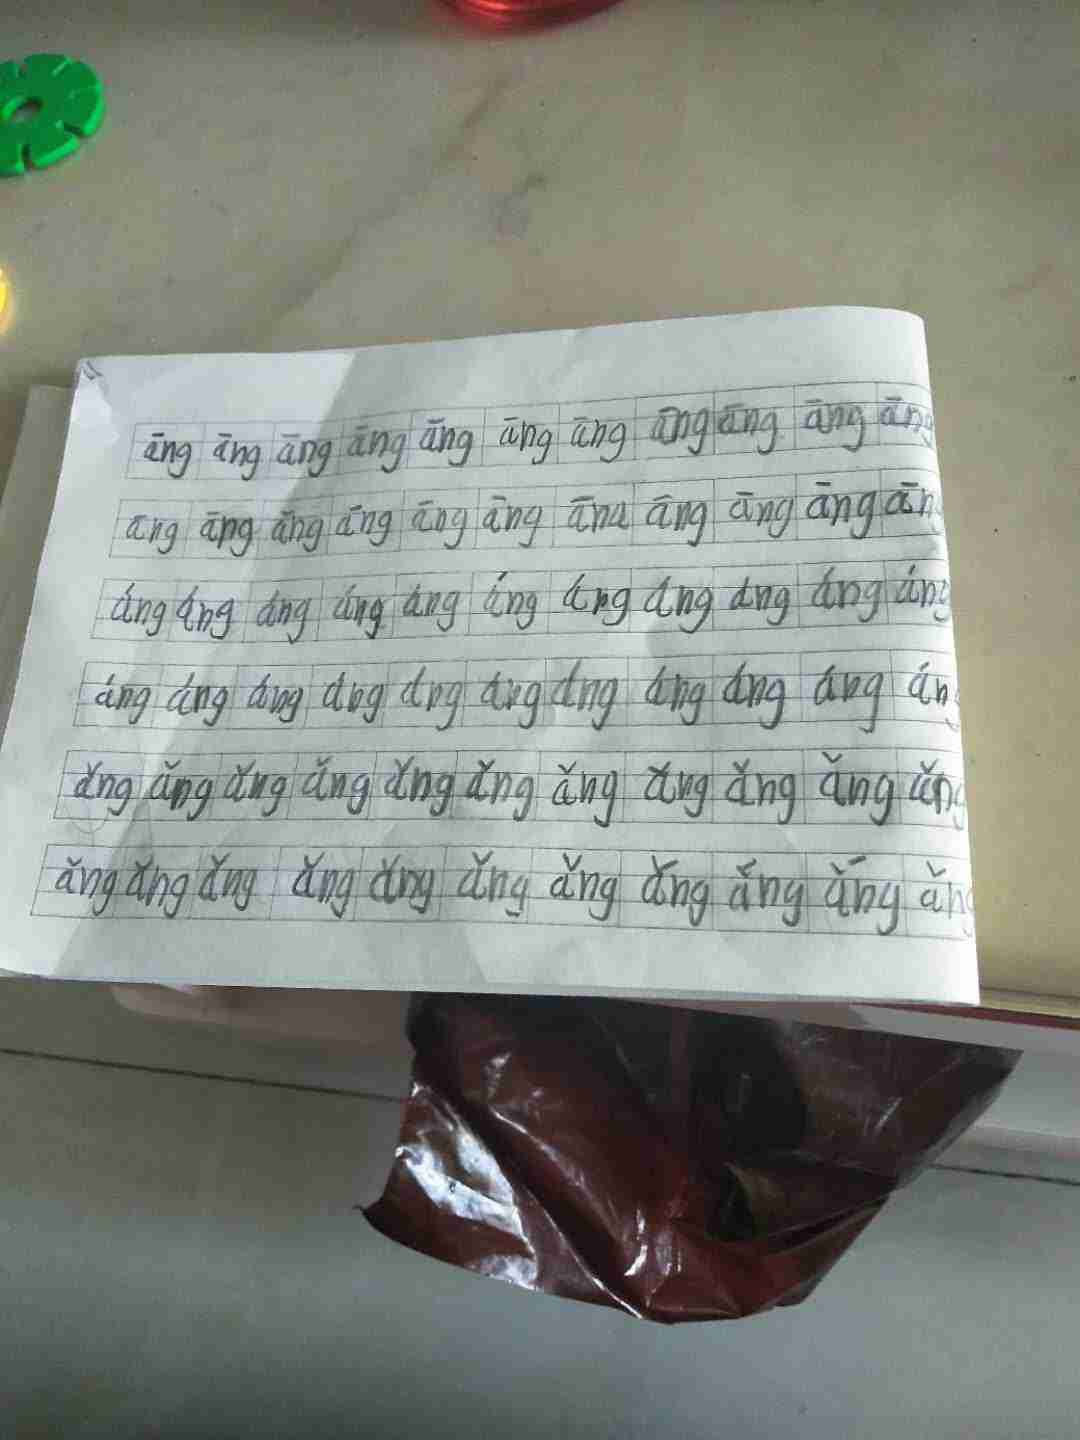 āng āng āng āng āng āng āng āng āng āng āng
āng āng āng āng āng āng āna āng āng āng āng
áng áng áng áng áng áng áng áng áng áng áng
áng áng áng áng áng áng áng áng áng áng áng
ǎng ǎng ǎng ǎng ǎng ǎng ǎng ǎng ǎng ǎng ǎng
ǎng ǎng ǎng ǎng ǎng ǎng ǎng ǎng ǎng ǎng ǎng